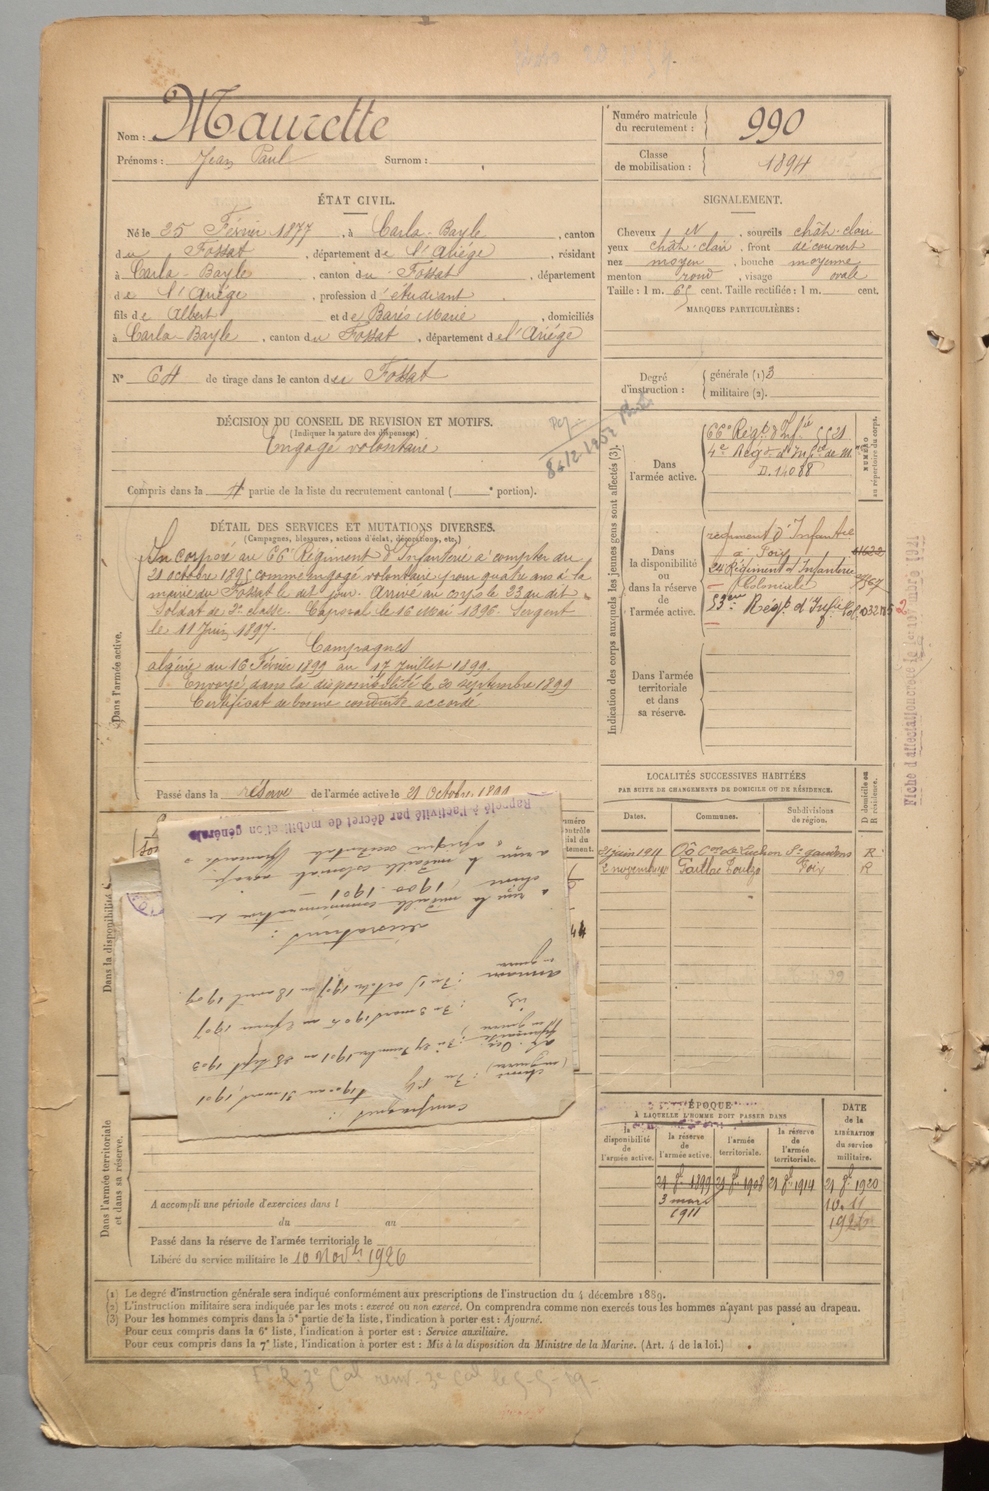 Nom : Maurette
Prénoms : Jean Paul Surnom :
Numéro matricule du recrutement : 990
Classe de mobilisation : 1894
ÉTAT CIVIL.
Né le 25 Février 1877, à Carla-Bayle, canton
du Fossat, département de l'Ariége, résidant
à Carla-Bayle, canton du Fossat, département
de l'Ariége, profession d'étudiant
fils de Albert et de Barés Marie, domiciliés
à Carla-Bayle, canton du Fossat, département de l'Ariége
N° 64 de tirage dans le canton du Fossat
SIGNALEMENT.
Cheveux N, sourcils chât-clair
yeux chât-clair, front découvert
nez moyen, bouche moyenne
menton rond, visage ovale
Taille : 1 m. 65 cent. Taille rectifiée : 1 m. cent.
MARQUES PARTICULIÈRES :
Degré d'instruction : générale (1) 3
militaire (2).
DÉCISION DU CONSEIL DE REVISION ET MOTIFS.
(Indiquer la nature des dispenses)
Engagé volontaire
Compris dans la 4 partie de la liste du recrutement cantonal ( e portion).
DÉTAIL DES SERVICES ET MUTATIONS DIVERSES.
(Campagnes, blessures, actions d'éclat, décorations, etc.)
Dans l'armée active.
Incorporé au 66e Régiment d'Infanterie à compter du
21 octobre 1895 comme engagé volontaire pour quatre ans à la
mairie du Fossat le dit jour. Arrivé au corps le 23 du dit
Soldat de 2e classe. Caporal le 16 Mai 1896. Sergent
le 11 Juin 1897.
Campagnes
algérie du 16 Février 1899 au 17 Juillet 1899.
Envoyé dans la disponibilité le 20 septembre 1899
Certificat de bonne conduite accordé
Passé dans la réserve de l'armée active le 21 Octobre 1899
Indication des corps auxquels les jeunes gens sont affectés (3).
NUMÉRO au répertoire du corps.
Dans l'armée active.
66e Régt d'Infie 5521
4e Régt d'Infie de Me
D. 14088
Dans la disponibilité ou dans la réserve de l'armée active.
régiment d'Infanterie
à Foix
24 Régiment d'Infanterie
Coloniale
53me Régt d'Infie Col.
Dans l'armée territoriale et dans sa réserve.
Fiche d'affectation
LOCALITÉS SUCCESSIVES HABITÉES
PAR SUITE DE CHANGEMENTS DE DOMICILE OU DE RÉSIDENCE.
Dates. Communes. Subdivisions de région. D domicile ou R résidence.
21 juin 1911 Oô Con de Luchon St gaudens R
Gaillac Toulza Foix R
Rappelé à l'activité par décret de mobilisation générale
campagnes :
chine (en guerre) : Du 1900 au 31 mars 1901
af. Occ. : Du 27 Décembre 1901 au 28 sept 1903
: Du 3 mars 1905 au 1907
annam : Du 15 octobre 1907 au 18 avril 1909
en guerre
décorations :
a reçu la médaille commémorative de
chine, 1900-1901 -
a reçu la médaille coloniale agrafe
"afrique occidentale française"
Dans la disponibilité
Dans l'armée territoriale et dans sa réserve.
A accompli une période d'exercices dans l
du au
Passé dans la réserve de l'armée territoriale le
Libéré du service militaire le 10 Novbre 1926
ÉPOQUE
À LAQUELLE L'HOMME DOIT PASSER DANS
la disponibilité de l'armée active. la réserve de l'armée active. l'armée territoriale. la réserve de l'armée territoriale. DATE de la LIBÉRATION du service militaire.
21 8bre 1899 21 8bre 1908 21 8bre 1914 21 8bre 1920
3 mars 1911
10.11
1926
(1) Le degré d'instruction générale sera indiqué conformément aux prescriptions de l'instruction du 4 décembre 1889.
(2) L'instruction militaire sera indiquée par les mots : exercé ou non exercé. On comprendra comme non exercés tous les hommes n'ayant pas passé au drapeau.
(3) Pour les hommes compris dans la 5e partie de la liste, l'indication à porter est : Ajourné.
Pour ceux compris dans la 6e liste, l'indication à porter est : Service auxiliaire.
Pour ceux compris dans la 7e liste, l'indication à porter est : Mis à la disposition du Ministre de la Marine. (Art. 4 de la loi.)